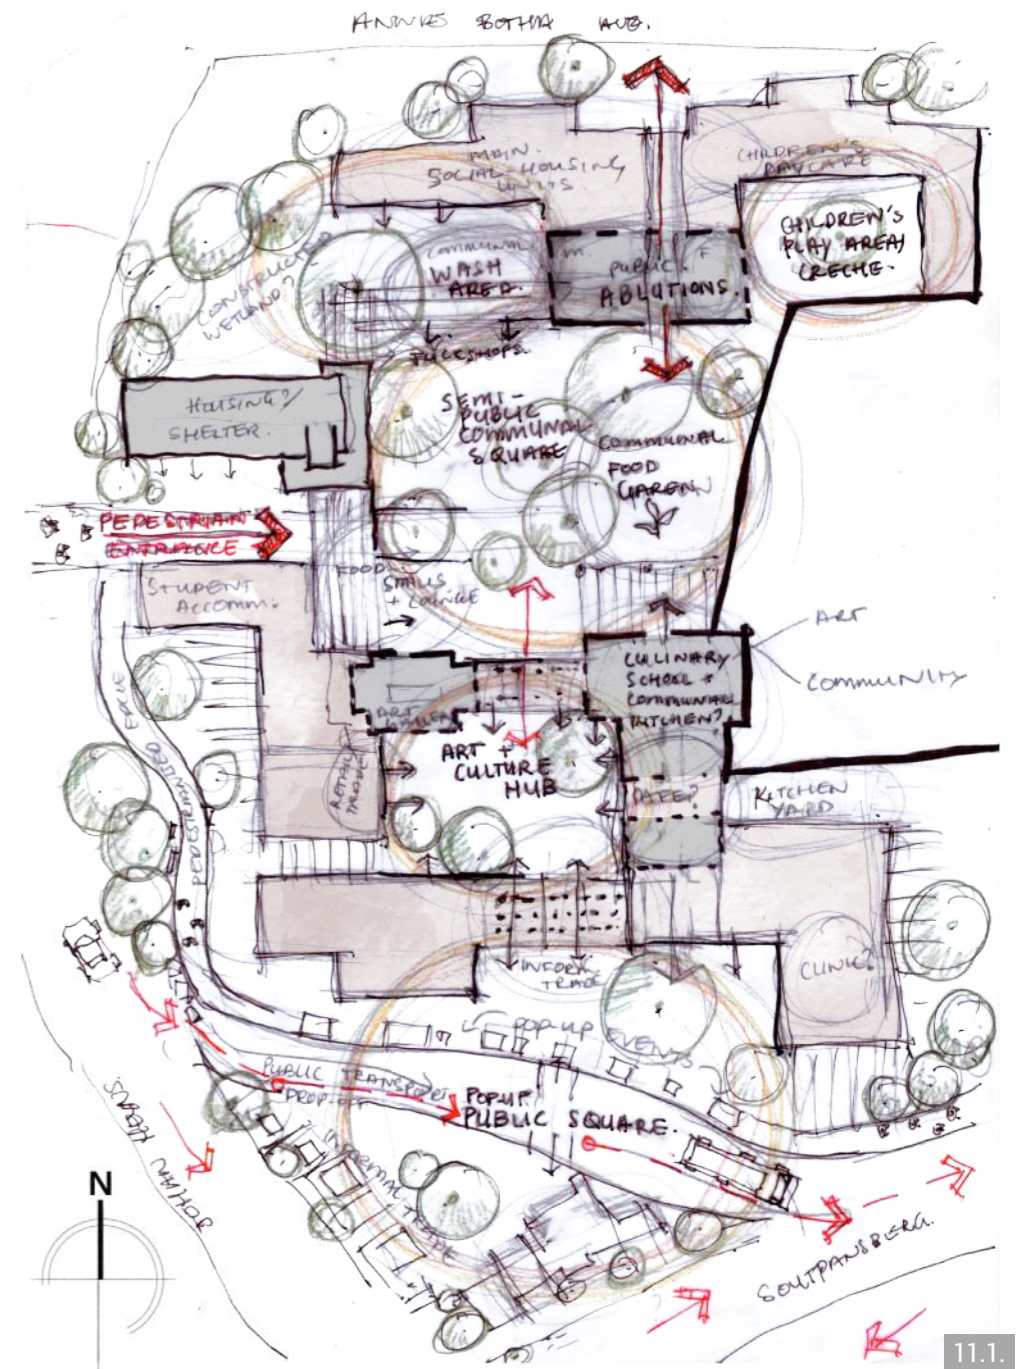 ANNIES BOTHA AVE.
MAIN.
SOCIAL HOUSING
UNITS
CHILDREN'S
DAYCARE
CHILDREN'S
PLAY AREA/
CRECHE.
COMMUNAL
WASH
AREA.
M.
F
PUBLIC
ABLUTIONS.
CONSTRUCTED
WETLAND?
TUCKSHOPS.
HOUSING?/
SHELTER.
SEMI-
PUBLIC
COMMUNAL
SQUARE
COMMUNAL
FOOD
GAREN
PEDESTRIAN
ENTRANCE
STUDENT
ACCOMM.
FOOD
STALLS
+ LOUNGE
ART
COMMUNITY
CULLINARY
SCHOOL +
COMMUNAL
KITCHEN?
ART
ART +
CULTURE
HUB
RETAIL
TRADE
CAFE?
KITCHEN
YARD
PEDESTRIANISED EDGE
CLINIC?
INFORMAL
TRADE
POP-UP EVENTS
PUBLIC TRANSPORT
DROP-OFF
POP-UP
PUBLIC SQUARE.
INFORMAL TRADE
JOHAN HEYNS
SOUTPANSBERG.
N
11.1.